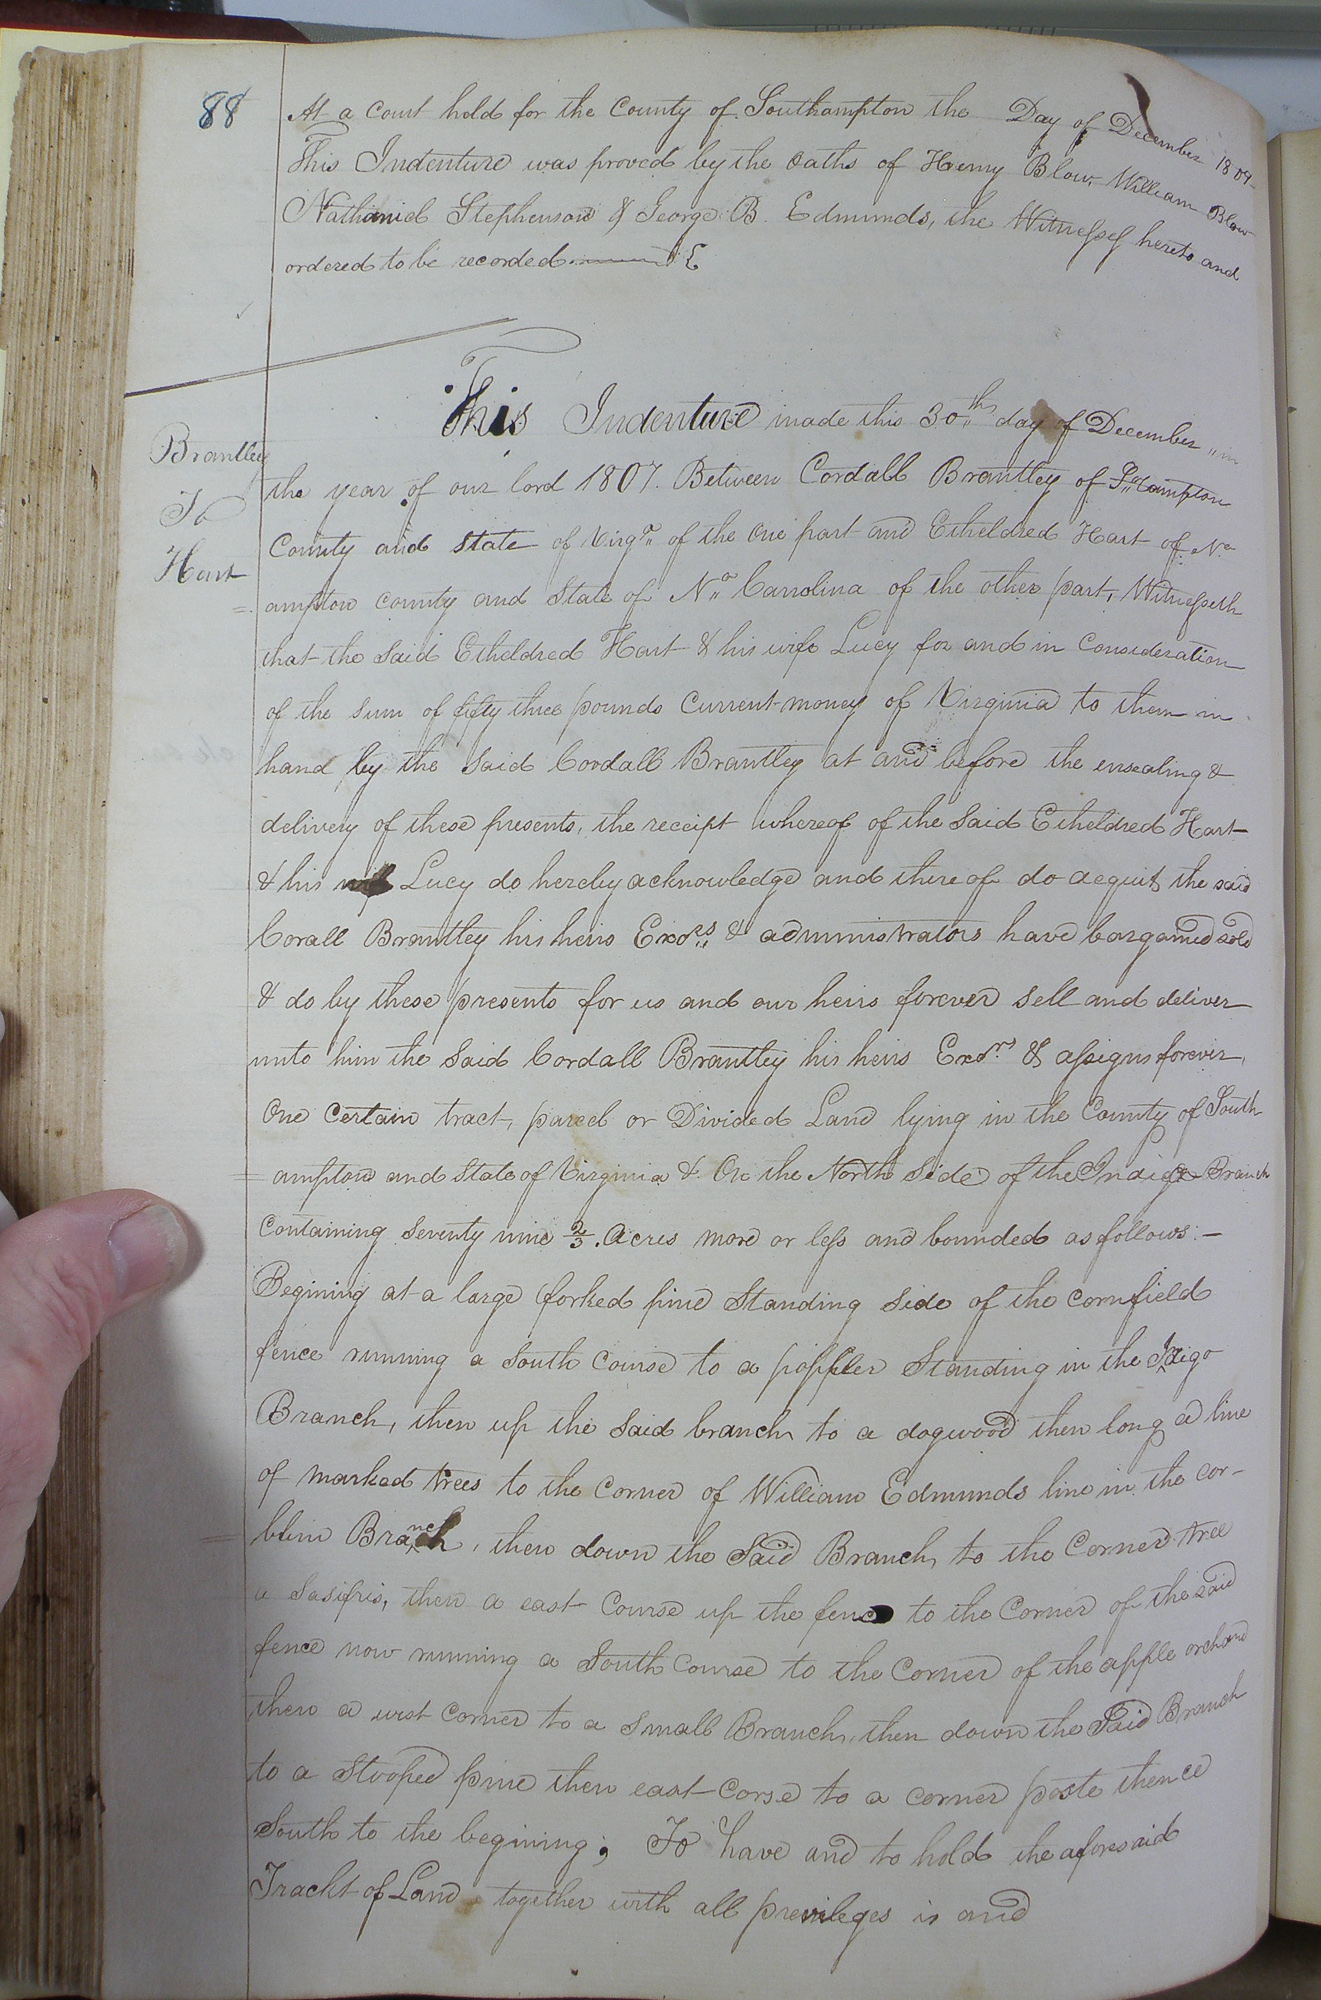 88
At a Court held for the County of Southampton the Day of December 1809
This Indenture was proved by the oaths of Henry Blow, William Blow
Nathaniel Stephenson & George B. Edmunds, the Witnesses hereto and
ordered to be recorded
Brantley
To
Hart
This Indenture made this 30th day of December in
the year of our lord 1807. Between Cordall Brantley of S.Hampton
County and State of Virga. of the One part and Etheldred Hart of No.
= ampton county and State of No. Carrolina of the other part, Witnesseth
that the Said Etheldred Hart & his wife Lucy for and in Consideration
of the Sum of fifty three pounds Current money of Virginia to them in
hand by the Said Cordall Brantley at and before the ensealing &
delivery of these presents, the receipt whereof of the Said Etheldred Hart
& his wife Lucy do hereby acknowledge and thereof do acquit the said
Corall Brantley his heirs Exors & administrators have bargained sold
& do by these presents for us and our heirs forever Sell and deliver
unto him the Said Cordall Brantley his heirs Exors & assigns forever,
One Certain tract, parcel or Divided Land lying in the County of South
= ampton and State of Virginia & On the North Side of the Indigo Branch
Containing Seventy nine 2/3. Acres more or less and bounded as follows:—
Begining at a large forked pine Standing Side of the Cornfield
fence running a South Course to a poppler Standing in the Indigo
Branch, then up the Said branch to a dogwood then long a line
of marked trees to the Corner of William Edmunds line in the cor-
= blin Branch, then down the Said Branch, to the Corner tree
a Sasifris, then a east Course up the fence to the Corner of the said
fence now running a South Course to the Corner of the apple orchard
then a west Corner to a Small Branch, then down the Said Branch
to a Stooped pine then east Corse to a corner poste thence
South to the begining; To have and to hold the aforesaid
Trackt of Land together with all previleges is and